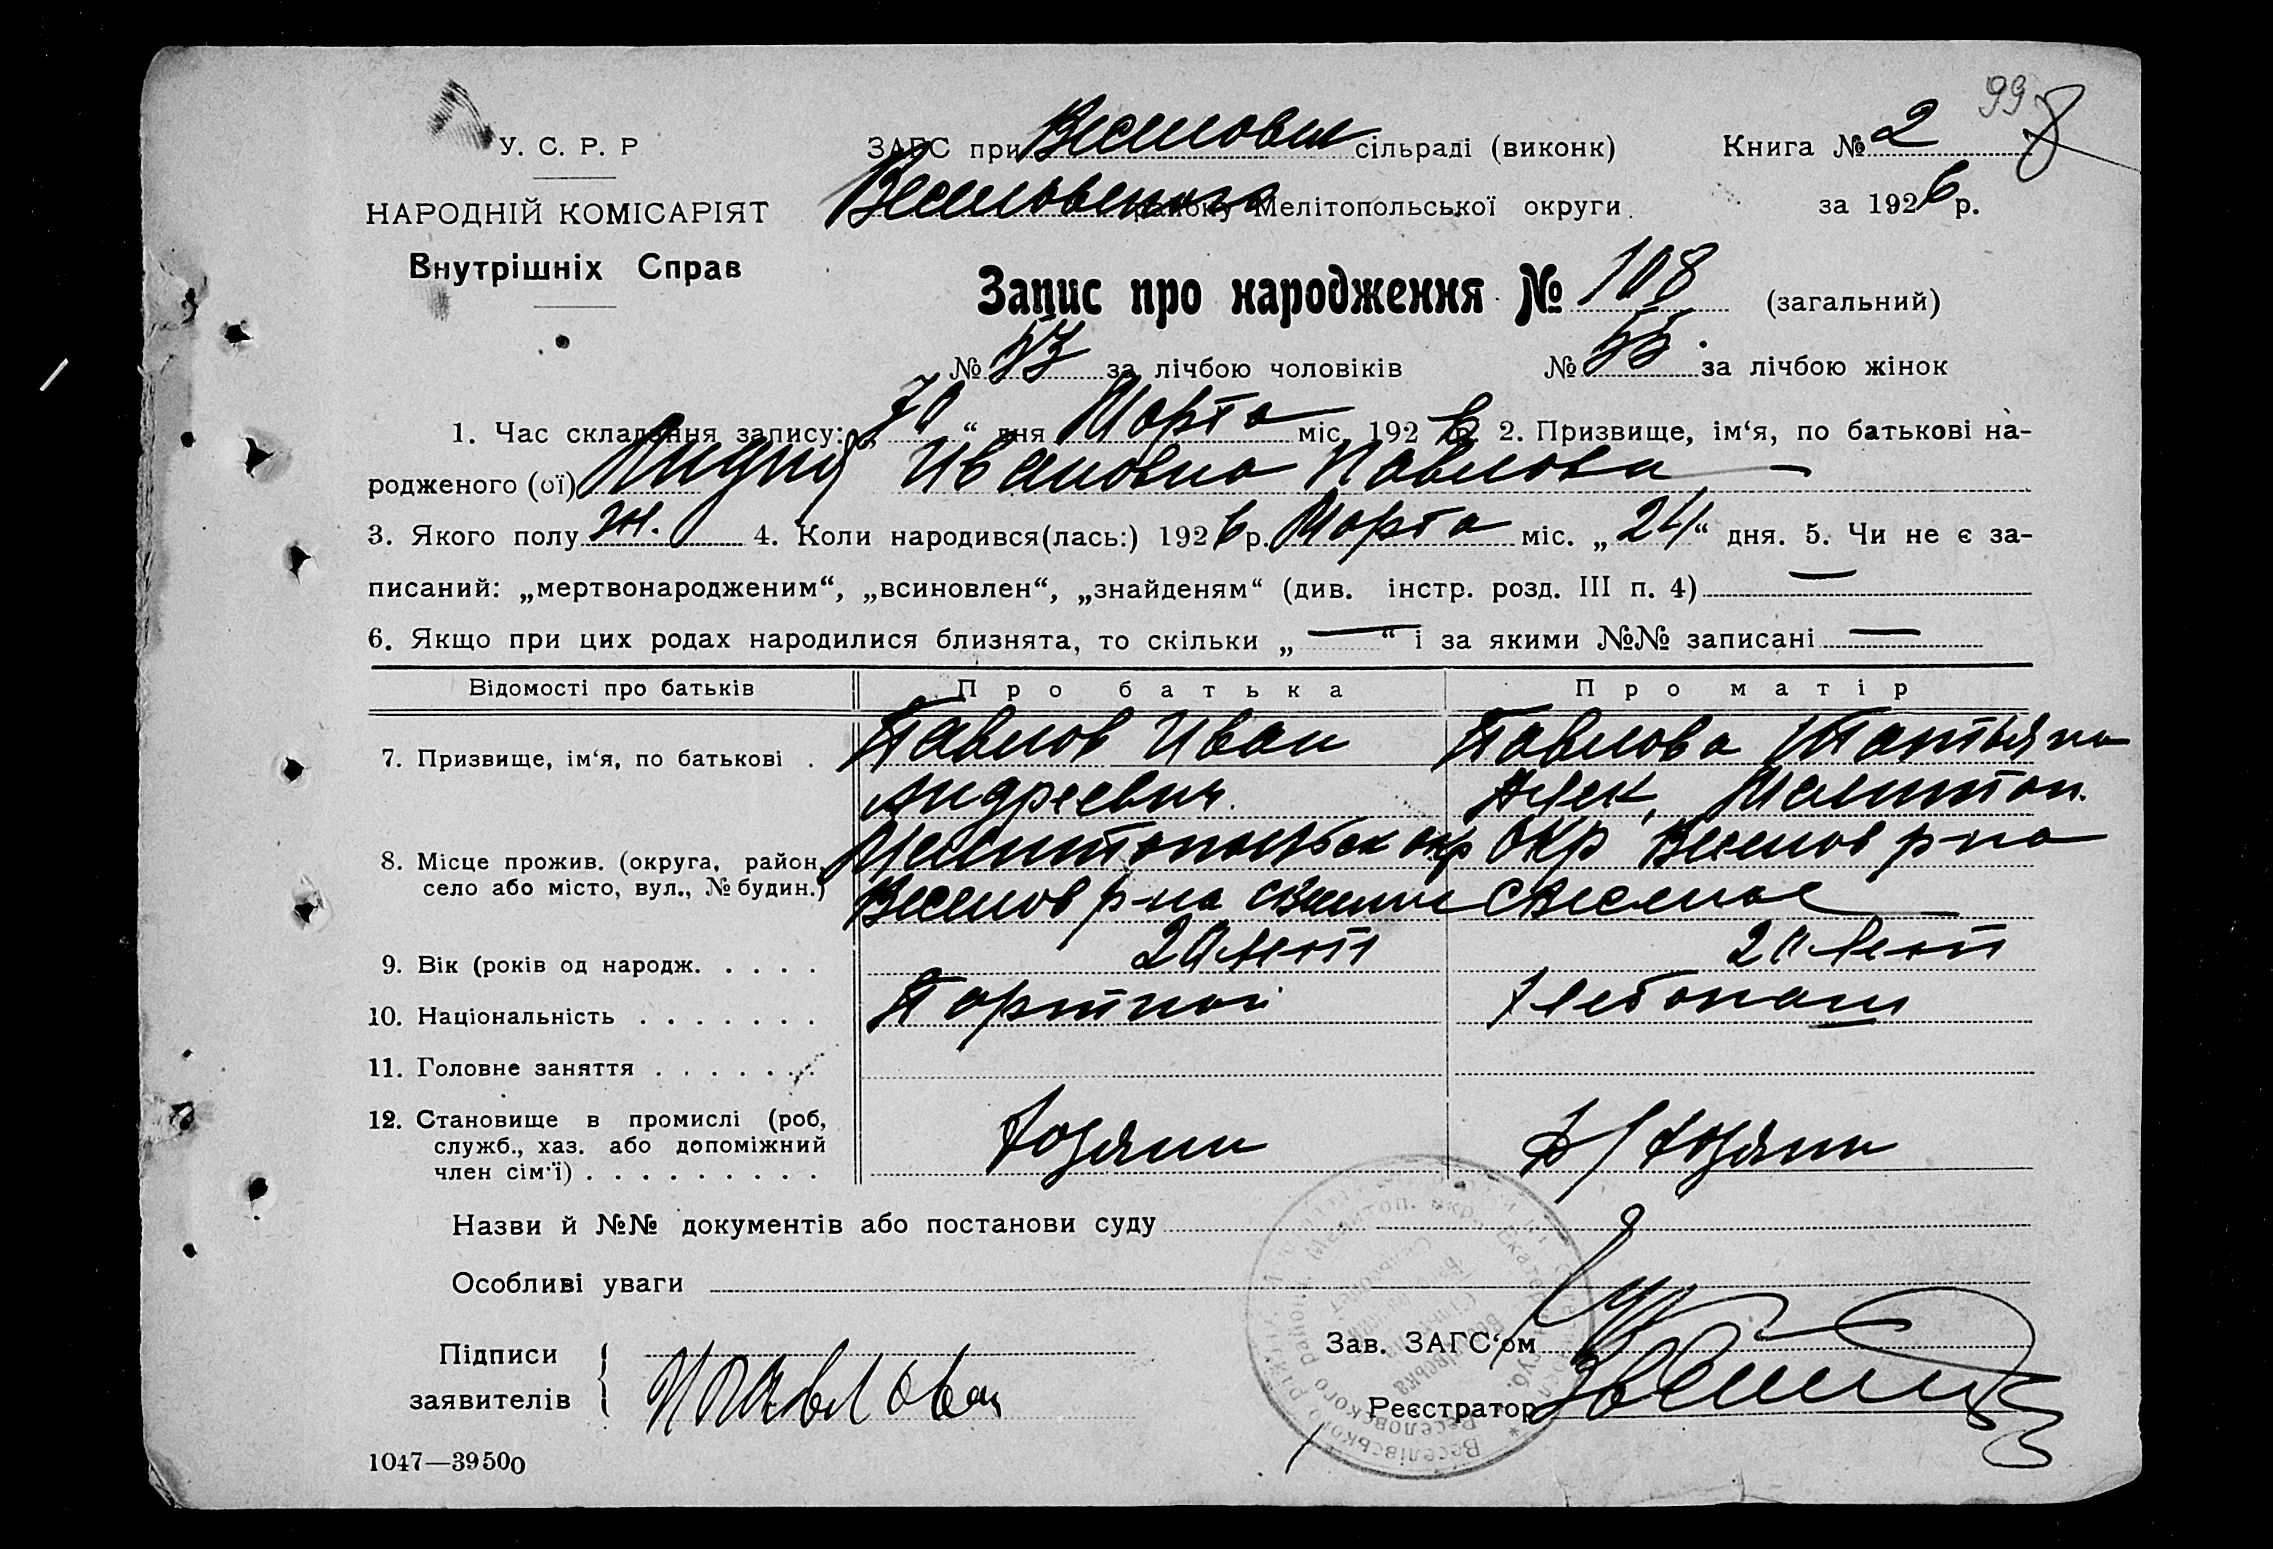 99 8
У. С. Р. Р
ЗАГС при Веселовск сільраді (виконк) Книга № 2
НАРОДНІЙ КОМІСАРІЯТ Веселовского району Мелітопольської округи за 1926 р.
Внутрішніх Справ
Запис про народження № 108 (загальний)
№ 53 за лічбою чоловіків № 55 за лічбою жінок
1. Час складання запису: „ 30 “ дня Марта міс. 1926 р. 2. Призвище, ім‘я, по батькові на-
родженого (ої) Лидия Ивановна Павлова —
3. Якого полу ж. 4. Коли народився(лась:) 1926 р. Марта міс. „ 24 “ дня. 5. Чи не є за-
писаний: „мертвонародженим“, „всиновлен“, „знайденям“ (див. інстр. розд. III п. 4) —
6. Якщо при цих родах народилися близнята, то скільки „ — “ і за якими №№ записані —
Відомості про батьків Про батька Про матір
7. Призвище, ім‘я, по батькові . Павлов Иван Павлова Татьяна
Андреевич. Алек, Мелитоп.
8. Місце прожив. (округа, район, Мелитопольск окр Окр Веселов р-на
село або місто, вул., № будин.) Веселов р-на с Веселое
9. Вік (років од народж. . . . . 20 лет 20 лет
10. Національність . . . . . . . Портной Хлебопаш
11. Головне заняття . . . . . . .
12. Становище в промислі (роб,
служб., хаз. або допоміжний Хозяин Хозяин
член сім‘ї) . . . . . . . . .
Назви й №№ документів або постанови суду
Особливі уваги
Підписи
заявителів Павлова
Зав. ЗАГС‘ом
Реєстратор
1047—39500